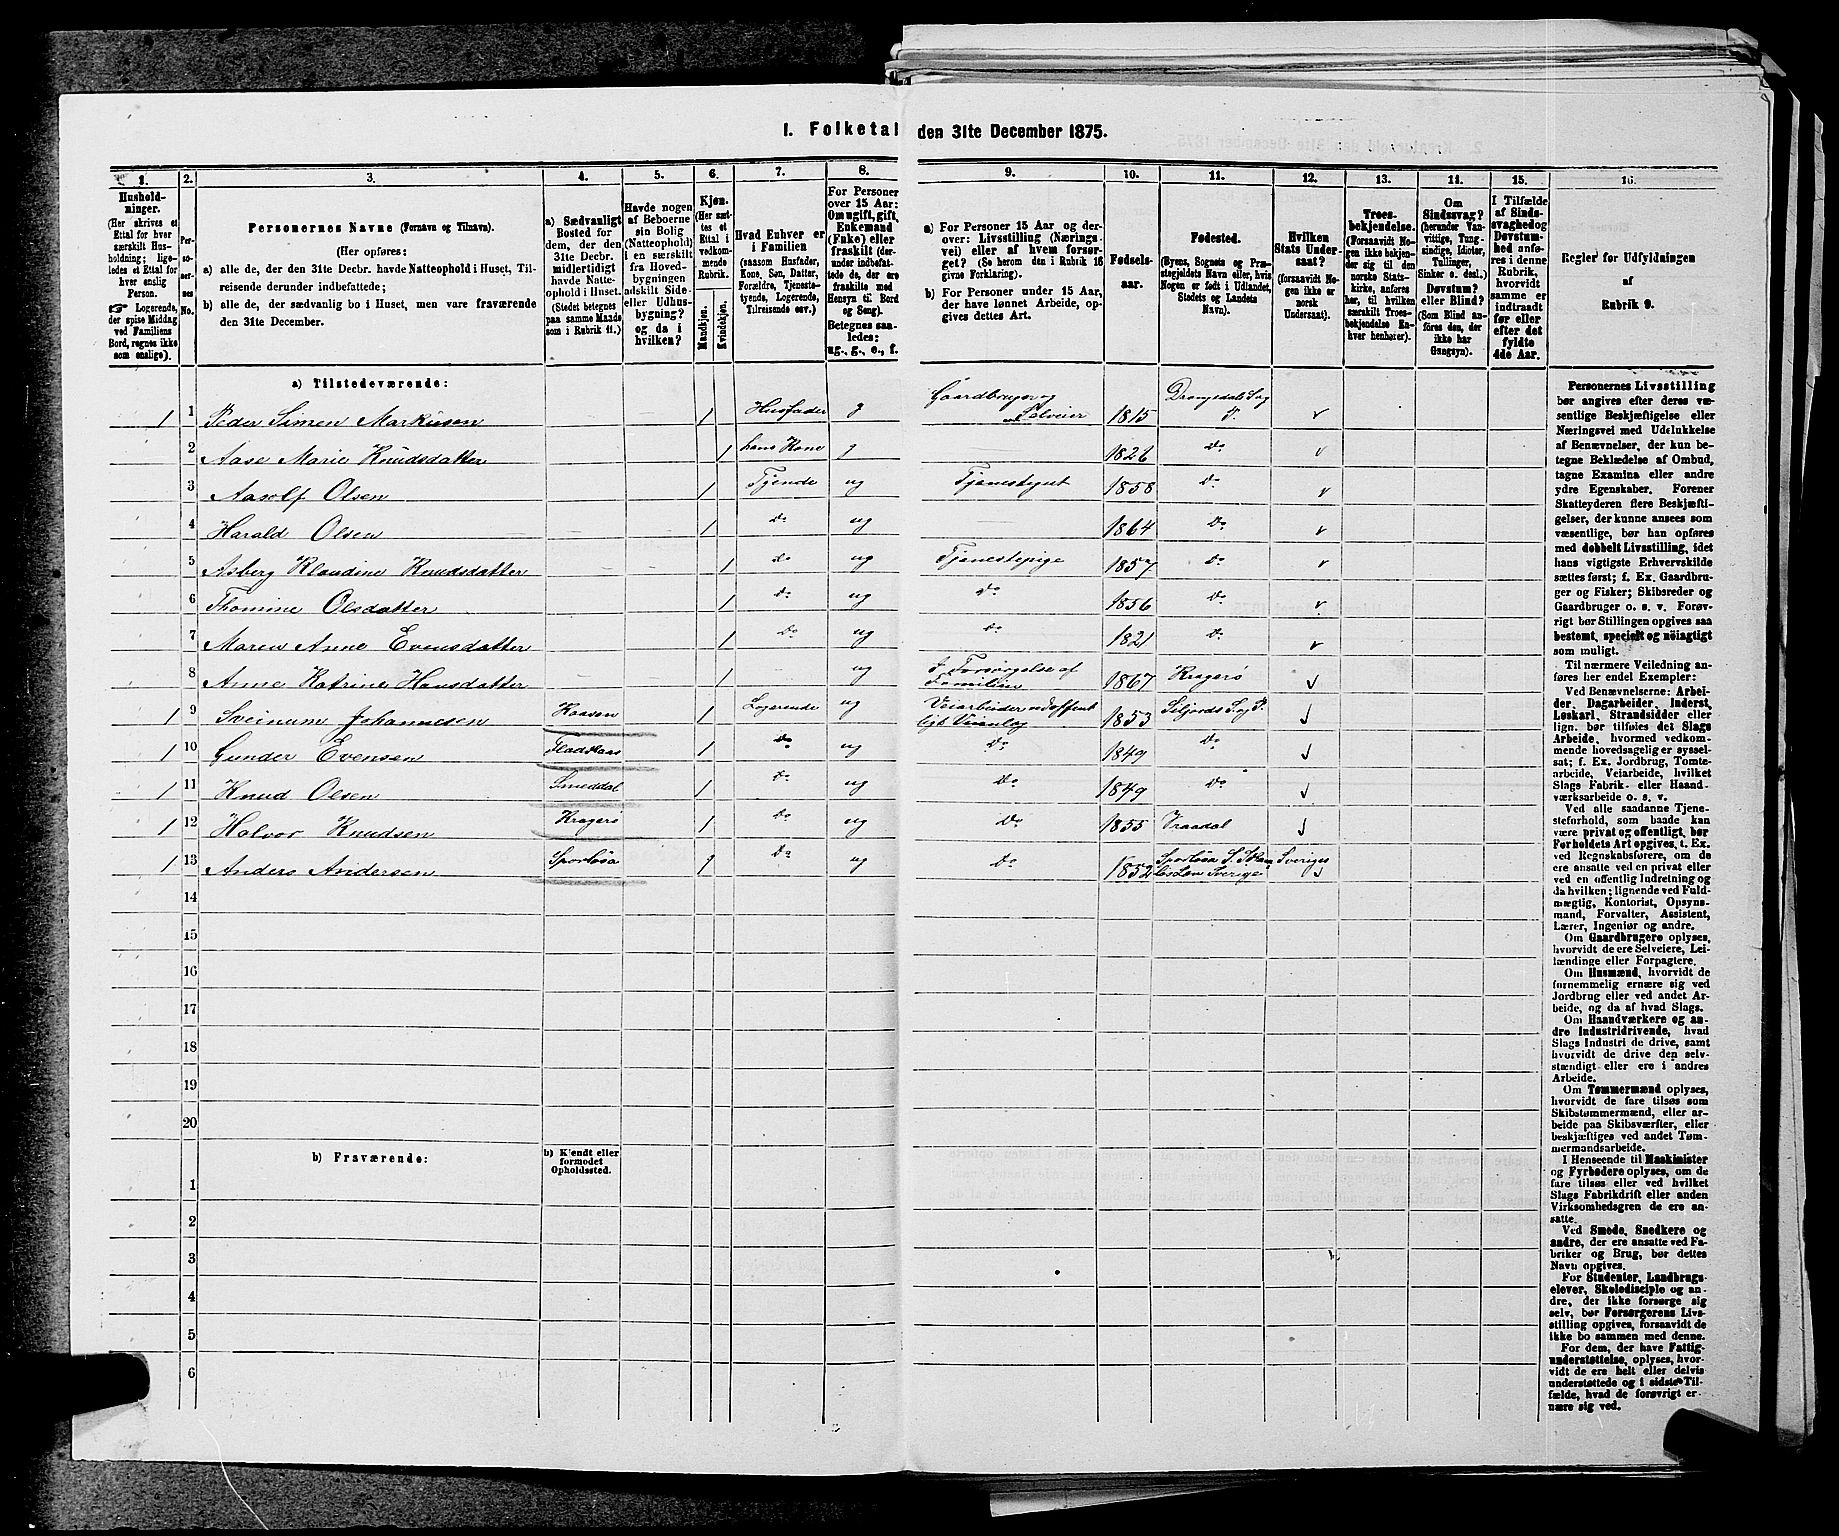 I. Folketal den 31te December 1875.
1. 2. 3. 4. 5. 6. 7. 8. 9. 10. 11. 12. 13. 14. 15. 16.
Hushold-
ninger.
(Her skrives et
Ettal for hver
særskilt Hus-
holdning; lige-
ledes et Ettal for
hver enslig
Person.
☞ Logerende,
der spise Middag
ved Familiens
Bord, regnes ikke
som enslige).
Per-
so-
ner-
nes
No.
Personernes Navne (Fornavn og Tilnavn).
(Her opføres:
a) alle de, der den 31te Decbr. havde Natteophold i Huset, Til-
reisende derunder indbefattede;
b) alle de, der sædvanlig bo i Huset, men vare fraværende
den 31te December.
a) Sædvanligt
Bosted for
dem, der den
31te Decbr.
midlertidigt
havde Natte-
ophold i Huset.
(Stedet betegnes
paa samme Maade
som i Rubrik 11.)
Havde nogen
af Beboerne
sin Bolig
(Natteophold)
i en særskilt
fra Hoved-
bygningen
adskilt Side-
eller Udhus-
bygning?
og da i
hvilken?
Kjøn.
(Her sæt-
tes et
Ettal i
vedkom-
mende
Rubrik.
Mandkjøn.
Kvindekjøn.
Hvad Enhver er
i Familien
(saasom Husfader,
Kone, Søn, Datter,
Forældre, Tjeneste-
tyende, Logerende,
Tilreisende osv.)
For Personer
over 15 Aar:
Om ugift, gift,
Enkemand
(Enke) eller
fraskilt (der-
under indbefat-
tede de, der ere
fraskilte med
Hensyn til Bord
og Seng).
Betegnes saa-
ledes:
ug., g., e., f.
a) For Personer 15 Aar og der-
over: Livsstilling (Nærings-
vei) eller af hvem forsør-
get? (Se herom den i Rubrik 16
givne Forklaring).
b) For Personer under 15 Aar,
der have lønnet Arbeide, op-
gives dettes Art.
Fødsels-
aar.
Fødested.
(Byens, Sognets og Præ-
stegjeldets Navn eller, hvis
Nogen er født i Udlandet,
Stedets og Landets
Navn).
Hvilken
Stats Under-
saat?
(forsaavidt No-
gen ikke er
norsk
Undersaat).
Troes-
bekjendelse.
(Forsaavidt No-
gen ikke bekjen-
der sig til den
norske Stats-
kirke, anføres
her, til hvilken
særskilt Troes-
bekjendelse En-
hver henhører).
Om
Sindssvag?
(herunder Van-
vittige, Tung-
sindige, Idioter,
Tullinger,
Sinker o. desl.)
Døvstum?
eller Blind?
(Som Blind an-
føres den, der
ikke har
Gangsyn).
I Tilfælde
af Sinds-
svaghed og
Døvstum-
hed anfø-
res i denne
Rubrik,
hvorvidt
samme er
indtraadt
før eller
efter det
fyldte
4de Aar.
Regler for Udfyldningen
af
Rubrik 9.
a) Tilstedeværende:
1 1 Peder Simen Markusen 1 Husfader g Gaardbruger og Selveier 1815 Drangedal S og P. v
2 Aase Marie Knudsdatter 1 hans Kone g 1826 Do v
3 Aasolf Olsen 1 Tjende ug Tjenestegut 1858 Do v
4 Harald Olsen 1 Do ug 1864 Do v
5 Asberg Klaudine Knudsdatter 1 do ug Tjenestepige 1857 do v
6 Thomine Olsdatter 1 Do ug Do 1856 Do v
7 Maren Anne Evensdatter 1 Do ug Do 1821 Do v
8 Anne Katrine Hansdatter 1 ug I Forsørgelse af Familien 1867 Kragerø v
1 9 Sveinum Johannesen 1 Logerende ug Veiarbeider ved offent ligt Veianlæg 1853 Siljords S. og P. v
1 10 Gunder Evensen 1 Do ug Do 1849 Do v
1 11 Knud Olsen Smeddal 1 Do ug Do 1849 Do v
1 12 Halvor Knudsen Kragerø 1 Do ug Do 1855 Vraadal v
1 13 Anders Andersen 1 Do ug Do 1852 Sverige Sveriges v
14
15
16
17
18
19
20
b) Fraværende:
b) Kjendt eller
formodet
Opholdssted.
1
2
3
4
5
6
Personernes Livsstilling
bør angives efter deres væ-
sentlige Beskjæftigelse eller
Næringsvei med Udelukkelse
af Benævnelser, der kun be-
tegne Beklædelse af Ombud,
tagne Examina eller andre
ydre Egenskaber. Forener
Skatteyderen flere Beskjæfti-
gelser, der kunne ansees som
væsentlige, bør han opføres
med dobbelt Livsstilling, idet
hans vigtigste Erhvervskilde
sættes først; f. Ex. Gaardbru-
ger og Fisker; Skibsreder og
Gaardbruger o. s. v. Forøv-
rigt bør Stillingen opgives saa
bestemt, specielt og nøiagtigt
som muligt.
Til nærmere Veiledning an-
føres her endel Exempler:
Ved Benævnelserne: Arbei-
der, Dagarbeider, Inderst,
Løskarl, Strandsidder eller
lign. bør tilføies det Slags
Arbeide, hvormed vedkom-
mende hovedsagelig er syssel-
sat; f. Ex. Jordbrug, Tomte-
arbeide, Veiarbeide, hvilket
Slags Fabrik- eller Haand-
værksarbeide o. s. v.
Ved alle saadanne Tjene-
steforhold, som baade kan
være privat og offentligt, bør
Forholdets Art opgives, t. Ex.
ved Regnskabsførere, om de
ere ansatte ved en privat eller
ved en offentlig Indretning og
da hvilken; lignende ved Fuld-
mægtig, Kontorist, Opsyns-
mand, Forvalter, Assistent,
Lærer, Ingeniør og andre.
Om Gaardbrugere oplyses,
hvorvidt de ere Selveiere, Lei-
lændinge eller Forpagtere.
Om Husmænd, hvorvidt de
fornemmelig ernære sig ved
Jordbrug eller ved andet Ar-
beide, og da af hvad Slags.
Om Haandværkere og an-
dre Industridrivende, hvad
Slags Industri de drive, samt
hvorvidt de drive den selv-
stændigt eller ere i andres
Arbeide.
Om Tømmermænd oplyses,
hvorvidt de fare tilsøs som
Skibstømmermænd, eller ar-
beide paa Skibsværfter, eller
beskjæftiges ved andet Tøm-
mermandsarbeide.
I Henseende til Maskinister
og Fyrbødere oplyses, om de
fare tilsøs eller ved hvilket
Slags Fabrikdrift eller anden
Virksomhedsgren de ere an-
satte.
Ved Smede, Snedkere og
andre, der ere ansatte ved Fa-
briker og Brug, bør dettes
Navn opgives.
For Studenter, Landbrugs-
elever, Skoledisciple og an-
dre, der ikke forsørge sig
selv, bør Forsørgerens Livs-
stilling opgives, forsaavidt de
ikke bo sammen med denne.
For dem, der have Fattig-
understøttelse, oplyses, hvor-
vidt de ere helt eller delvis
understøttede og i sidste Til-
fælde, hvad de forøvrigt er-
nære sig ved.